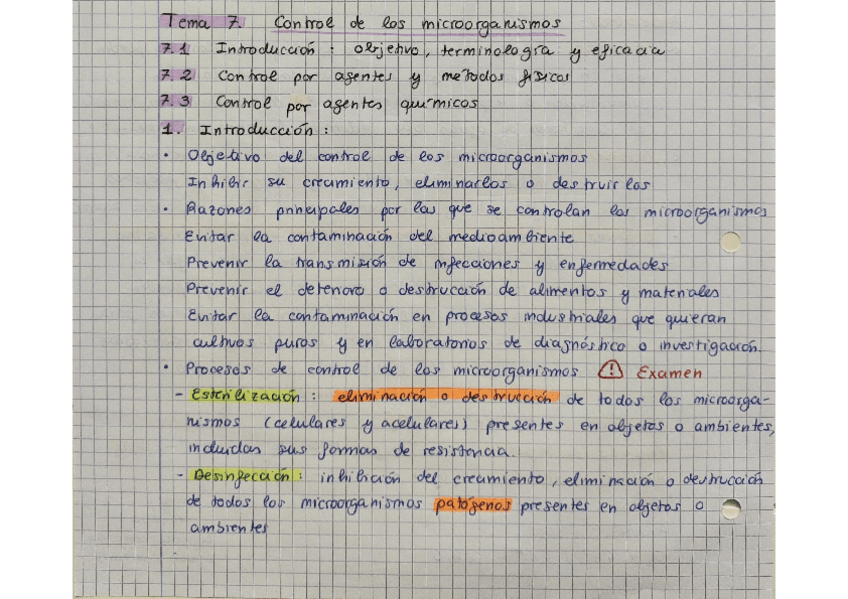 Tema 7. Control de los microorganismos
7.1 Introducción: objetivo, terminología y eficacia
7.2 Control por agentes y métodos físicos
7.3 Control por agentes químicos
1. Introducción:
• Objetivo del control de los microorganismos
Inhibir su crecimiento, eliminarlos o destruirlos
• Razones principales por las que se controlan los microorganismos
Evitar la contaminación del medioambiente
Prevenir la transmisión de infecciones y enfermedades
Prevenir el deterioro o destrucción de alimentos y materiales
Evitar la contaminación en procesos industriales que quieran
cultivos puros y en laboratorios de diagnóstico o investigación.
• Procesos de control de los microorganismos ⚠ Examen
- Esterilización: eliminación o destrucción de todos los microorga-
nismos (celulares y acelulares) presentes en objetos o ambientes,
incluidas sus formas de resistencia.
- Desinfección: inhibición del crecimiento, eliminación o destrucción
de todos los microorganismos patógenos presentes en objetos o
ambientes